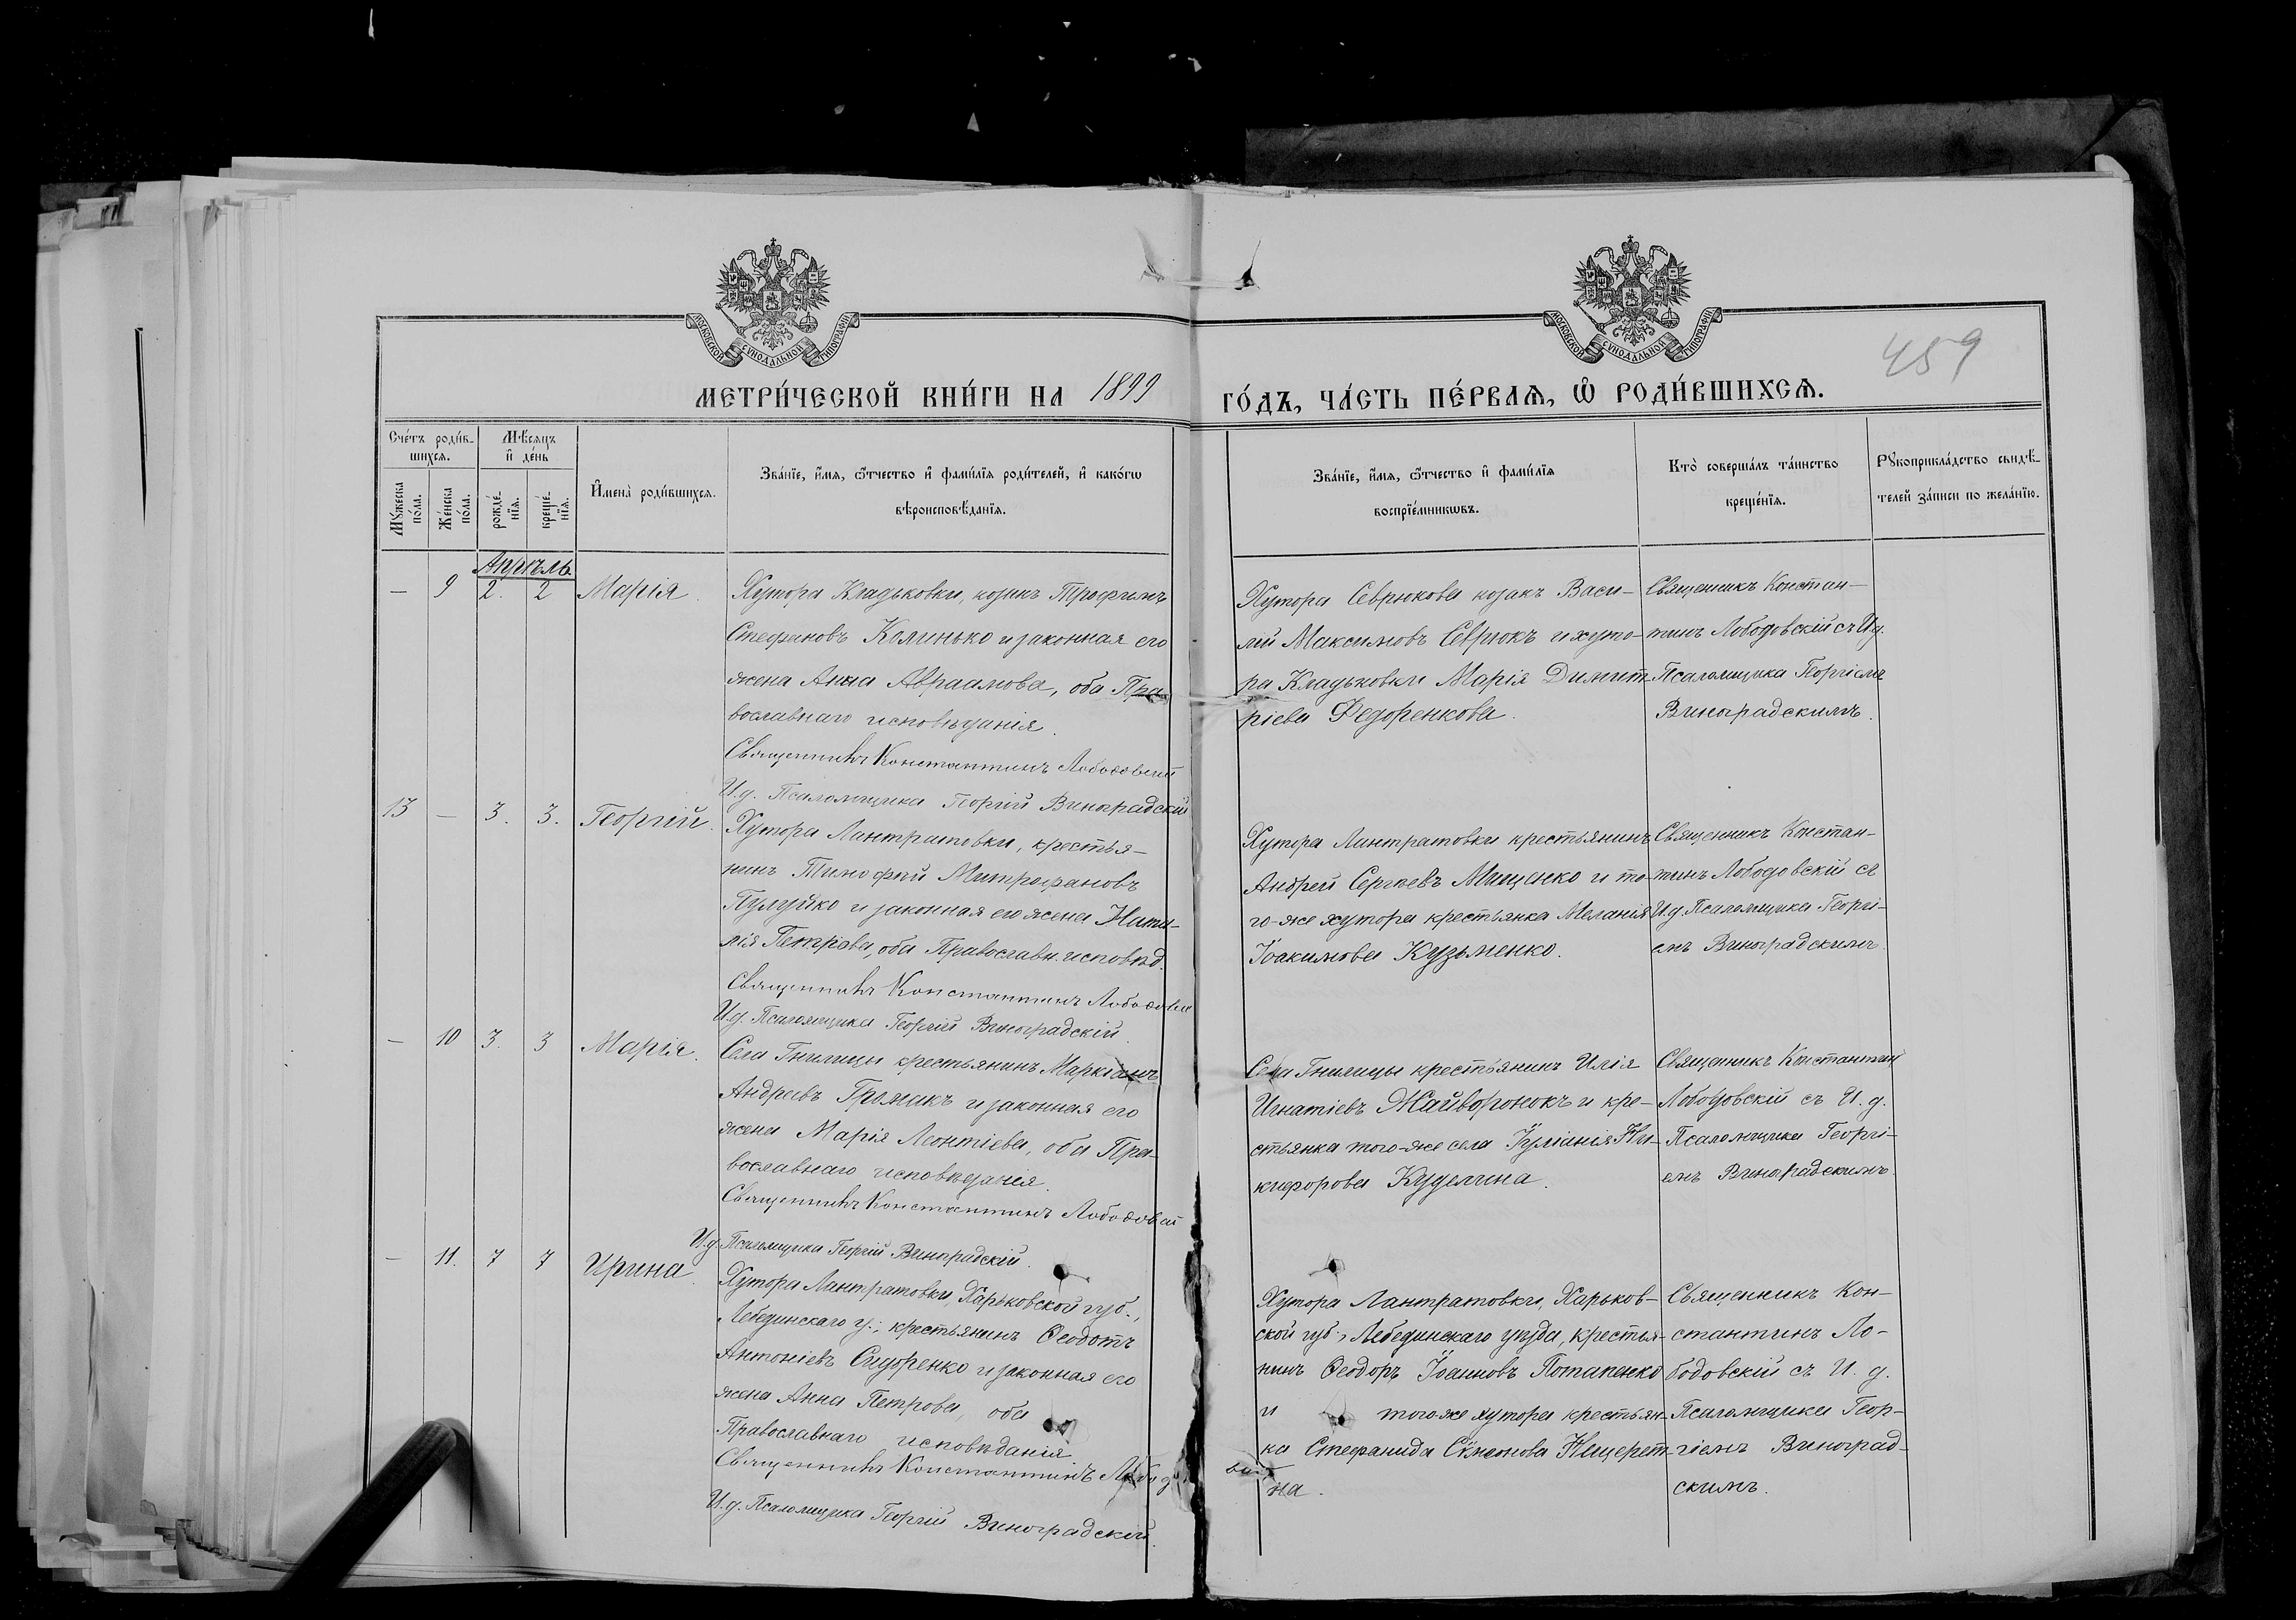 МОСКОВСКОЙ СѴНОДАЛЬНОЙ ТИПОГРАФІИ
МОСКОВСКОЙ СѴНОДАЛЬНОЙ ТИПОГРАФІИ
459
МЕТРИ́ЧЕСКОЙ КНИ́ГИ НА 1899 ГО́ДЪ, ЧА́СТЬ ПЕ́РВАѦ, Ѽ РОДИ́ВШИХСѦ.
Сче́тъ роди́в-
шихсѧ.
Мꙋ́жеска по́ла.
Же́нска по́ла.
Мѣ́сѧцъ
и҆ де́нь
рожде́-
нїѧ.
креще́-
нїѧ.
И҆мена̀ роди́вшихсѧ.
Зва́нїе, и҆́мѧ, ѻ҆́тчество и҆ фами́лїѧ роди́телей, и҆ како́гѡ
вѣроисповѣ́данїѧ.
Зва́нїе, и҆́мѧ, ѻ҆́тчество и҆ фами́лїѧ
воспрїе́мникѡвъ.
Кто̀ соверша́лъ та́инство
креще́нїѧ.
Рꙋкоприкла́дство свидѣ́-
телей за́писи по жела́нїю.
Апрѣль
— 9 2. 2 Марія.
Хутора Кладьковки, козакъ Трофимъ
Стефановъ Калинько и законная его
жена Анна Авраамова, оба Пра-
вославнаго исповѣданія.
Священникъ Константинъ Лободовскій
И.д. Псаломщика Георгій Виноградскій
Хутора Севрюкова козакъ Васи-
лій Максимовъ Севрюкъ и хуто-
ра Кладьковки Марія Димит-
ріева Федоренкова.
Священникъ Констан-
тинъ Лободовскій съ И.д.
Псаломщика Георгіемъ
Виноградскимъ.
13 — 3. 3. Георгій.
Хутора Лантратовки, крестья-
нинъ Тимофей Митрофановъ
и законная его жена Ната-
лія Петрова, оба Православн. исповѣд.
Священникъ Константинъ
И.д. Псаломщика Георгій Виноградскій.
Хутора Лантратовки крестьянинъ
Андрей Сергѣевъ Мищенко и то-
го-же хутора крестьянка Меланія
Іоакимова Кузьменко.
Священникъ Констан-
тинъ Лободовскій съ
И.д. Псаломщика Георгі-
емъ Виноградскимъ.
— 10 3. 3 Марія.
Села Гнилицы крестьянинъ Маркіанъ
Андреевъ Громакъ и законная его
жена Марія Леонтіева, оба Пра-
вославнаго исповѣданія.
Священникъ Константинъ
И.д. Псаломщика Георгій Виноградскій.
Села Гнилицы крестьянинъ Илія
Игнатіевъ Жайворонокъ и кре-
стьянка того-же села Іуліанія Ни-
кифорова Куделина.
Священникъ Константинъ
Лободовскій съ И. д.
Псаломщика Георгі-
емъ Виноградскимъ.
— 11. 7 7 Ирина.
Хутора Лантратовки, Харьковской губ.,
Лебединскаго у., крестьянинъ Ѳеодотъ
Антоніевъ Сидоренко и законная его
жена Анна Петрова, оба
Православнаго исповѣданія.
Священникъ Константинъ
И.д. Псаломщика Георгій Виноградскій.
Хутора Лантратовки, Харьков-
ской губ., Лебединскаго уѣзда, крестья-
нинъ Ѳеодоръ Іоанновъ Потапенко
и того-же хутора крестьян-
ка Стефанида Сѵмеонова
на.
Священникъ Кон-
стантинъ Ло-
бодовскій съ И. д.
Псаломщика Геор-
гіемъ Виноград-
скимъ.